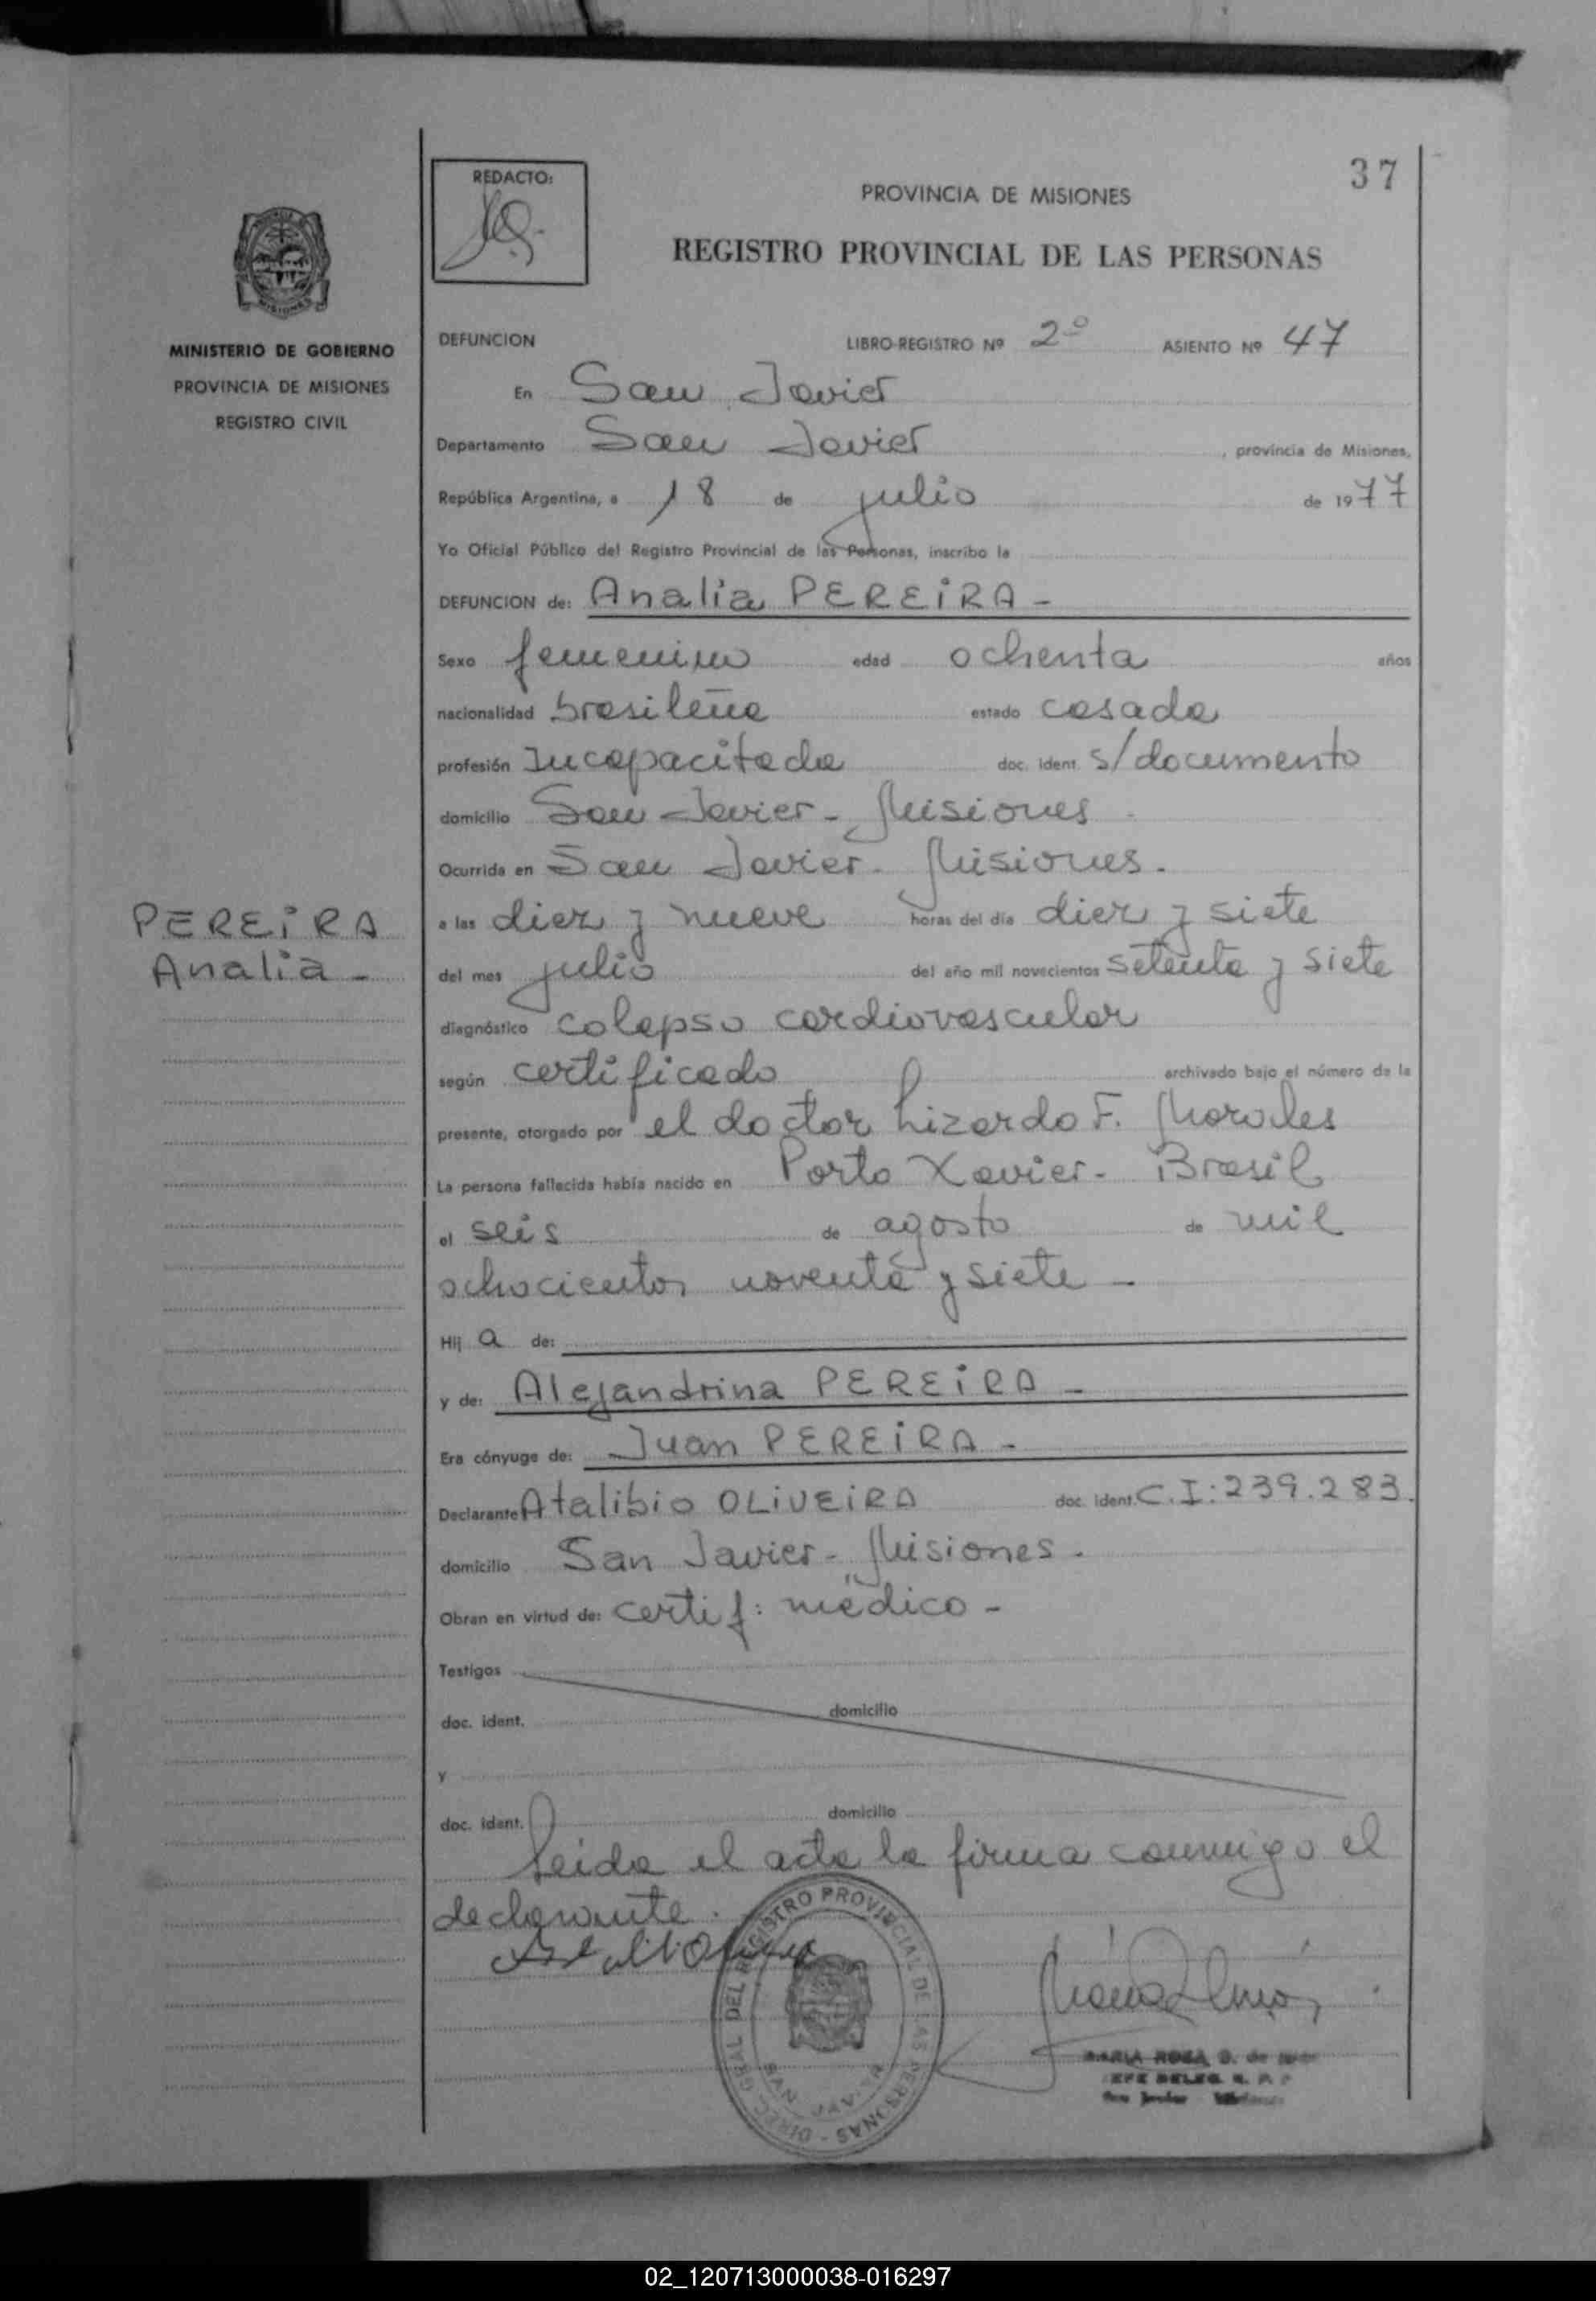 37
REDACTO:
PROVINCIA DE MISIONES
REGISTRO PROVINCIAL DE LAS PERSONAS
MINISTERIO DE GOBIERNO
PROVINCIA DE MISIONES
REGISTRO CIVIL
DEFUNCION LIBRO-REGISTRO Nº 2º ASIENTO Nº 47
En San Javier
Departamento San Javier, provincia de Misiones,
República Argentina, a 18 de julio de 1977
Yo Oficial Público del Registro Provincial de las Personas, inscribo la
DEFUNCION de: Analia PEREIRA -
Sexo femenino edad ochenta años
nacionalidad brasileña estado casada
profesión Incapacitada doc. ident. s/documento
domicilio San Javier - Misiones
Ocurrida en San Javier - Misiones.
PEREIRA
Analia -
a las diez y nueve horas del día diez y siete
del mes julio del año mil novecientos setenta y siete
diagnóstico colapso cardiovascular
según certificado archivado bajo el número de la
presente, otorgado por el doctor Lizardo F. Morales
La persona fallecida había nacido en Porto Xavier - Brasil
el seis de agosto de mil
ochocientos noventa y siete -
Hij a de:
y de: Alejandrina PEREIRA -
Era cónyuge de: Juan PEREIRA -
Declarante Atalibio OLIVEIRA doc. ident. C.I: 239.283.
domicilio San Javier - Misiones.
Obran en virtud de: certif: médico -
Testigos
doc. ident. domicilio
y
doc. ident. domicilio
Leida el acta la firma conmigo el
declarante.
DIREC. GRAL DEL REGISTRO PROVINCIAL DE LAS PERSONAS -
SAN JAVIER
MARIA ROSA
JEFE DELEG. R. P.
02_120713000038-016297